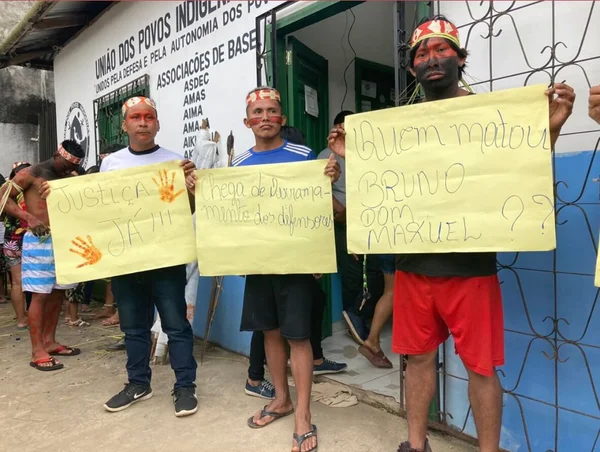 UNIÃO DOS POVOS INDÍGENAS
UNIDOS PELA DEFESA E PELA AUTONOMIA DOS POVOS
ASSOCIAÇÕES DE BASE
ASDEC
AMAS
AIMA
JUSTIÇA
JÁ!!!
Chega de Derrama-
mento dos defensores
Quem matou
BRUNO
DOM
MAXUEL ??